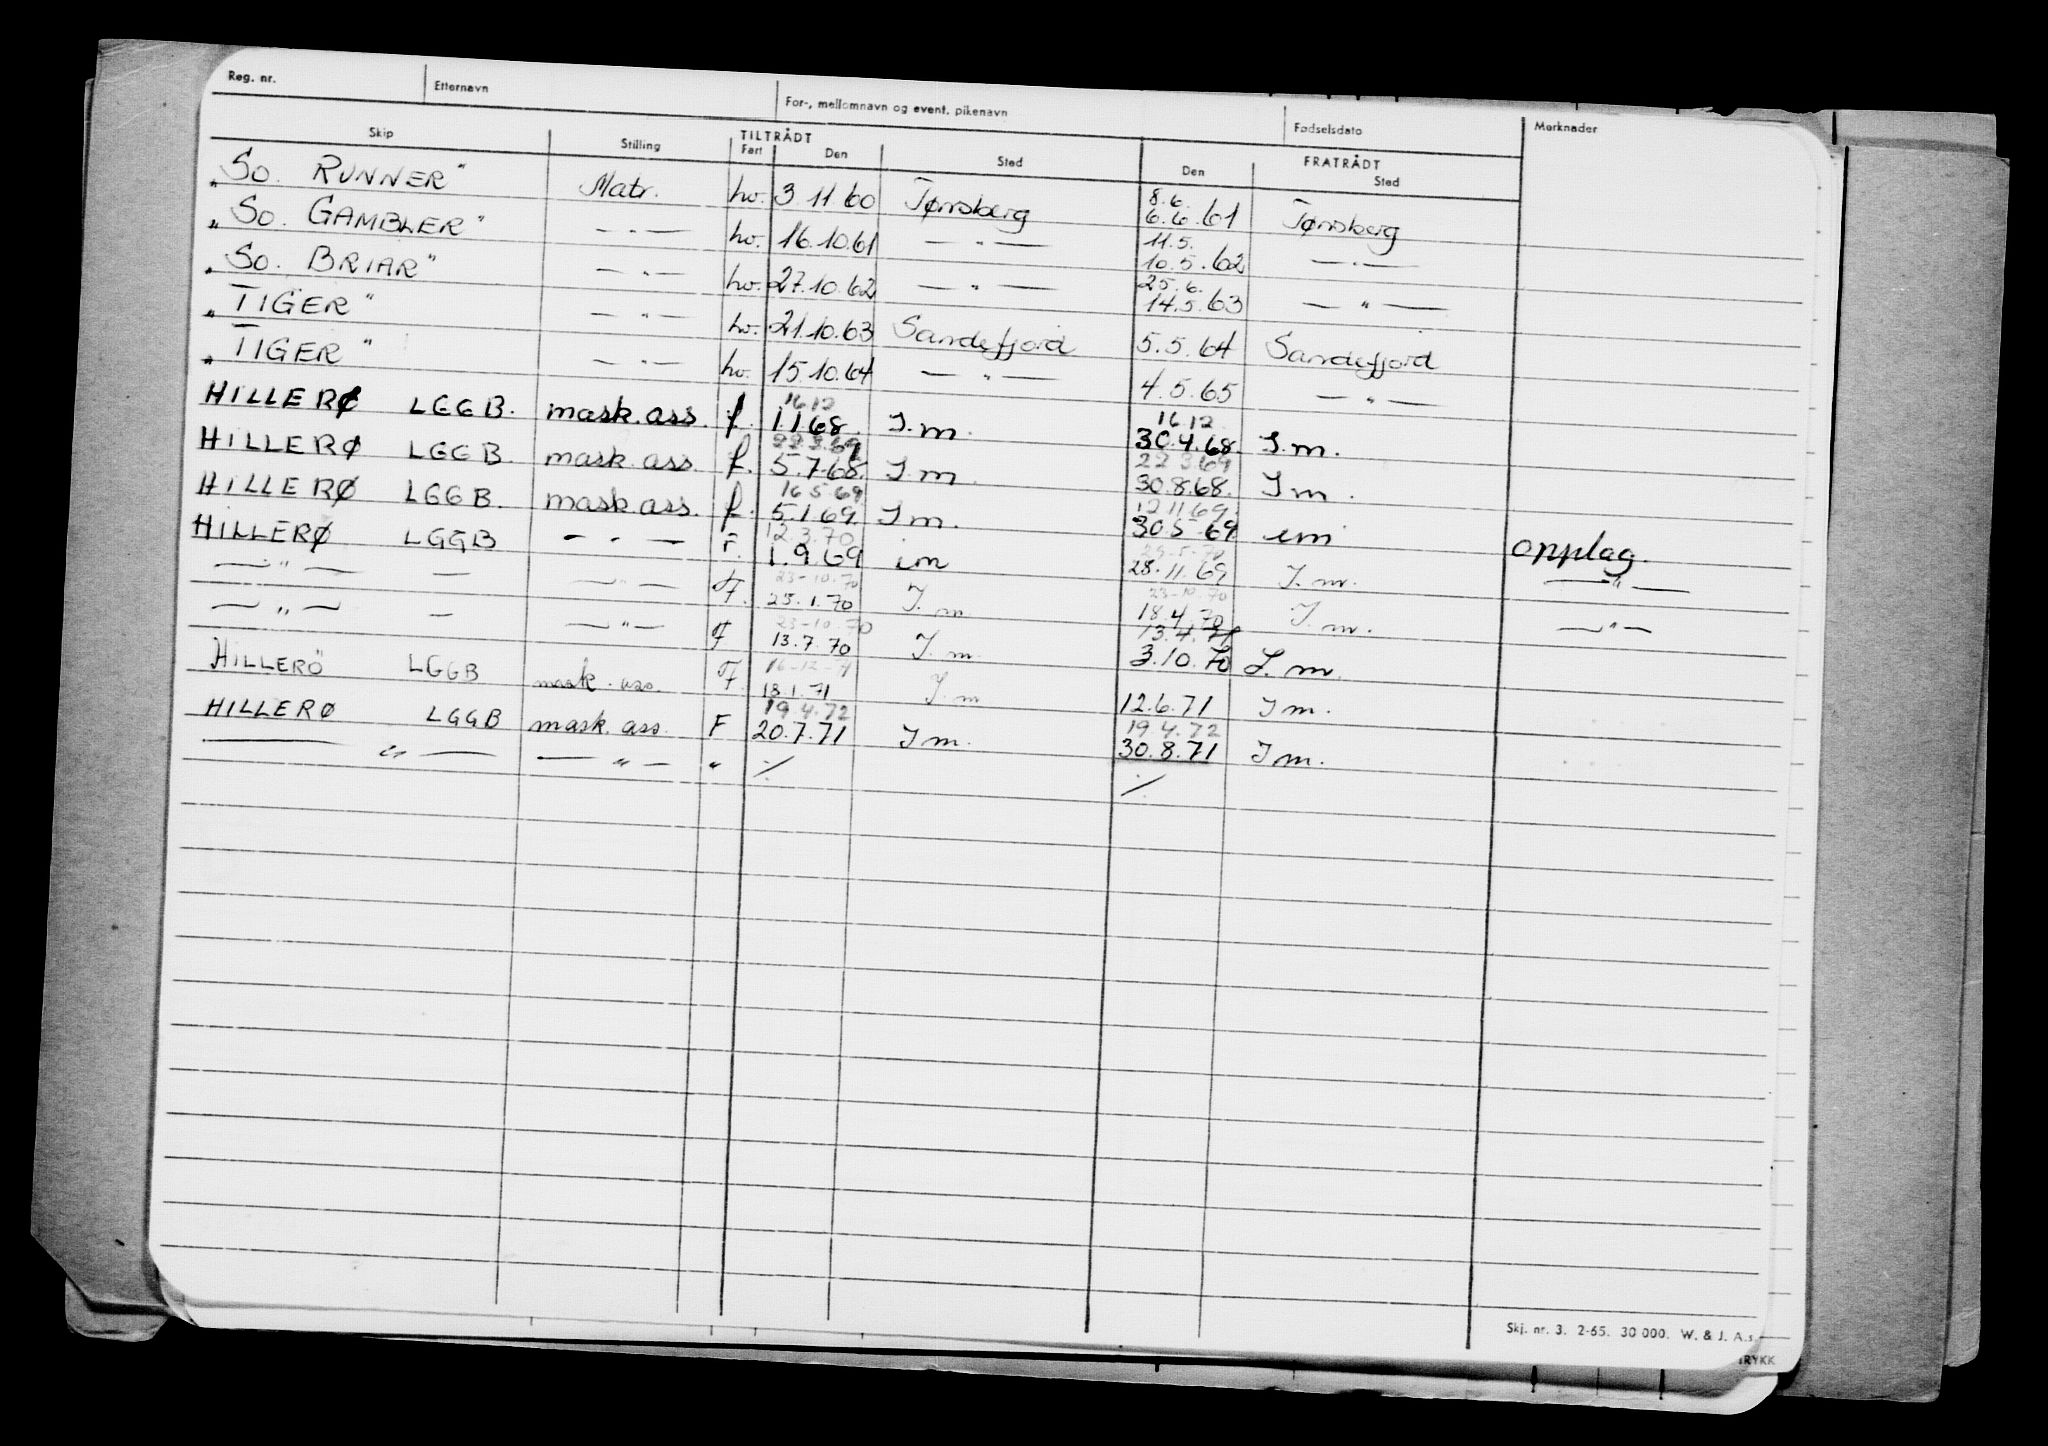 Reg. nr. Etternavn For-, mellomnavn og event. pikenavn Fødselsdato Merknader
TILTRÅDT FRATRÅDT
Skip Stilling Fart Den Sted Den Sted
8.6.
„So. RUNNER" Matr. hv. 3.11.60 Tønsberg 6.6.61 Tønsberg
11.5.
„So. GAMBLER" — " — hv. 16.10.61 — " — 10.5.62 — " —
25.6.
„So. BRIAR" — " — hv. 27.10.62 — " — 14.5.63 — " —
„TIGER" — " — hv. 21.10.63 Sandefjord 5.5.64 Sandefjord
„TIGER" — " — hv. 15.10.64 — " — 4.5.65 — " —
16 12 16 12
HILLERØ LGGB. mask.ass. f. 1.1.68. I.m. 30.4.68. I.m.
22 3.69 22 3 69
HILLERØ LGGB. mask.ass f. 5.7.68. I.m. 30.8.68. I m.
16 5 69 12 11 69
HILLERØ LGGB. mask.ass. f. 5.1.69. I m. 30.5.69 im
12.3.70 25-5-70
HILLERØ LGGB — " — F. 1.9.69 im 28.11.69 I.m. opplag.
23-10.70 23-10.70
— " — — — " — F. 25.1.70 I.m. 18.4.70 I.m. — " —
23-10.70 13.4.71
— " — — — " — F 13.7.70 I.m. 3.10.70 I.m. — " —
16-12-71
HILLERÖ LGGB mask.ass. F. 18.1.71 I.m 12.6.71 I m.
19.4.72 19 4.72
HILLERØ LGGB mask.ass. F 20.7.71 I m. 30.8.71 I m.
— " — — " — " ⁒ ⁒
Skj. nr. 3. 2-65. 30 000. W. & J. A.s.
TRYKK